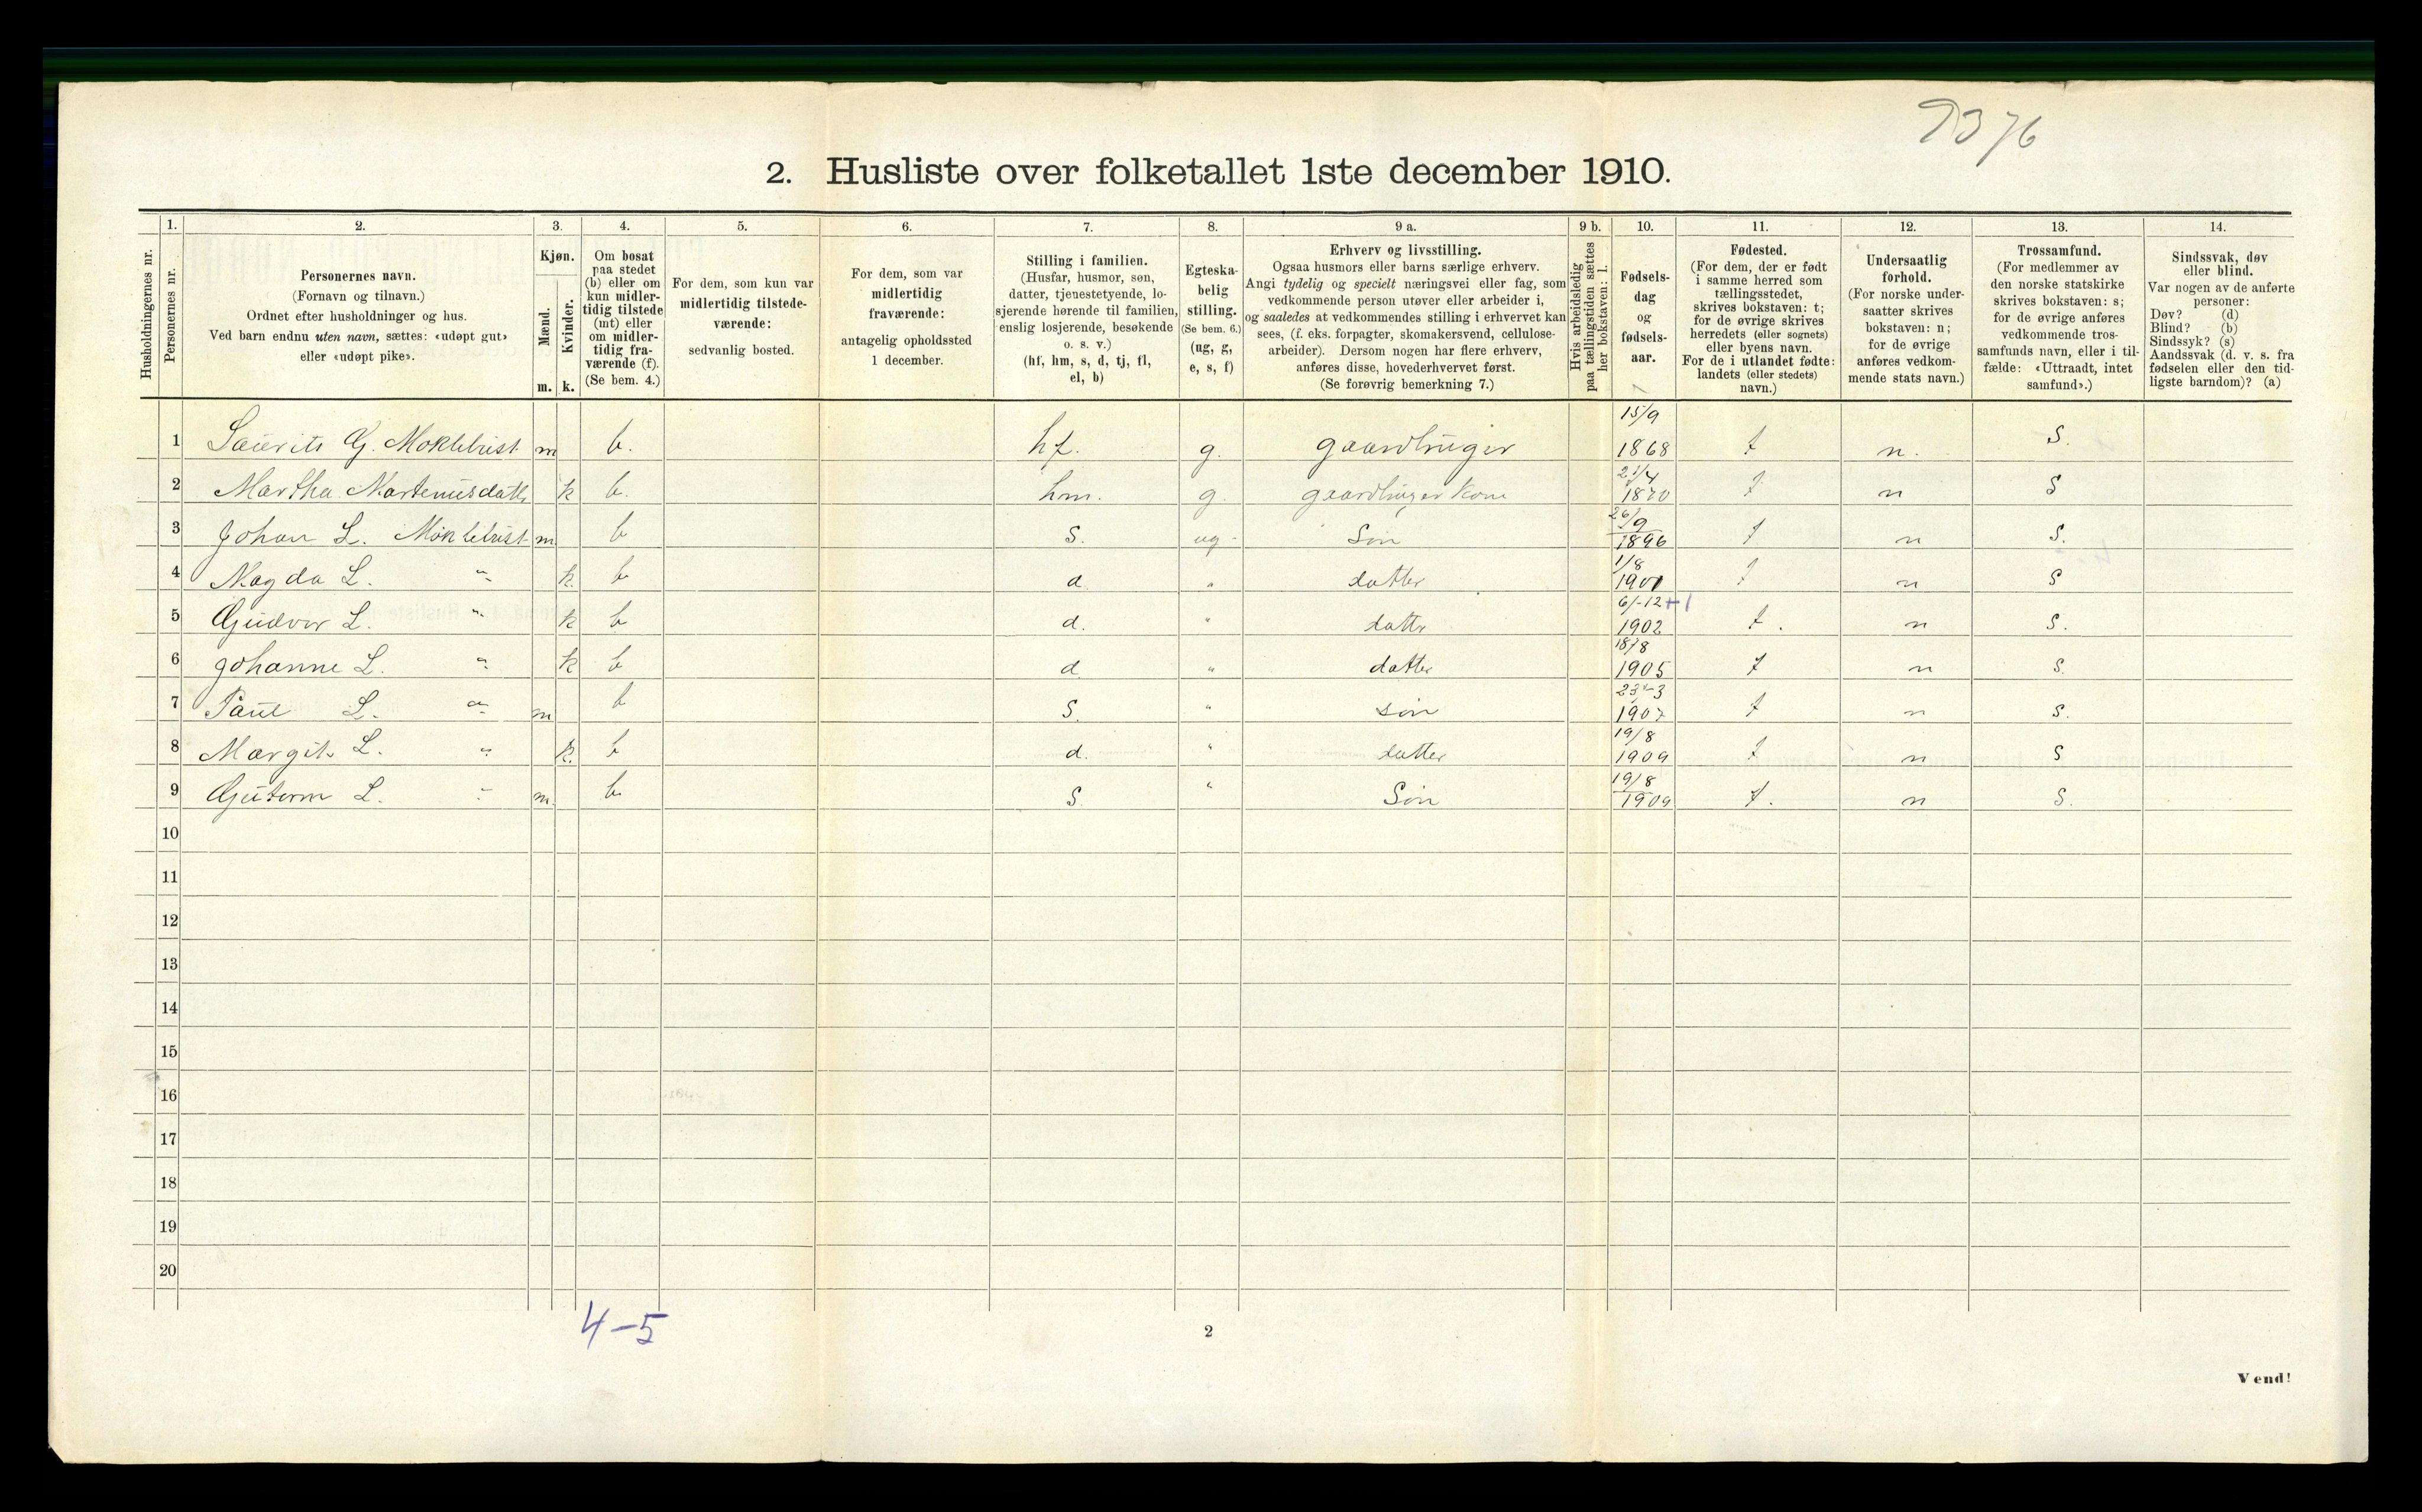 7376
2. Husliste over folketallet 1ste december 1910.
Husholdningernes nr.
1. Personernes nr.
2. Personernes navn.
(Fornavn og tilnavn.)
Ordnet efter husholdninger og hus.
Ved barn endnu uten navn, sættes: «udøpt gut»
eller «udøpt pike».
3. Kjøn.
Mænd. m.
Kvinder. k.
4. Om bosat
paa stedet
(b) eller om
kun midler-
tidig tilstede
(mt) eller
om midler-
tidig fra-
værende (f).
(Se bem. 4.)
5. For dem, som kun var
midlertidig tilstede-
værende:
sedvanlig bosted.
6. For dem, som var
midlertidig
fraværende:
antagelig opholdssted
1 december.
7. Stilling i familien.
(Husfar, husmor, søn,
datter, tjenestetyende, lo-
sjerende hørende til familien,
enslig losjerende, besøkende
o. s. v.)
(hf, hm, s, d, tj, fl,
el, b)
8. Egteska-
belig
stilling.
(Se bem. 6.)
(ug, g,
e, s, f)
9 a. Erhverv og livsstilling.
Ogsaa husmors eller barns særlige erhverv.
Angi tydelig og specielt næringsvei eller fag, som
vedkommende person utøver eller arbeider i,
og saaledes at vedkommendes stilling i erhvervet kan
sees, (f. eks. forpagter, skomakersvend, cellulose-
arbeider). Dersom nogen har flere erhverv,
anføres disse, hovederhvervet først.
(Se forøvrig bemerkning 7.)
9 b. Hvis arbeidsledig
paa tællingstiden sættes
her bokstaven: l.
10. Fødsels-
dag
og
fødsels-
aar.
11. Fødested.
(For dem, der er født
i samme herred som
tællingsstedet,
skrives bokstaven: t;
for de øvrige skrives
herredets (eller sognets)
eller byens navn.
For de i utlandet fødte:
landets (eller stedets)
navn.)
12. Undersaatlig
forhold.
(For norske under-
saatter skrives
bokstaven: n;
for de øvrige
anføres vedkom-
mende stats navn.)
13. Trossamfund.
(For medlemmer av
den norske statskirke
skrives bokstaven: s;
for de øvrige anføres
vedkommende tros-
samfunds navn, eller i til-
fælde: «Uttraadt, intet
samfund».)
14. Sindssvak, døv
eller blind.
Var nogen av de anførte
personer:
Døv? (d)
Blind? (b)
Sindssyk? (s)
Aandssvak (d. v. s. fra
fødselen eller den tid-
ligste barndom)? (a)
1 Laurits G. Moklebust m b. hf. g. gaardbruger 15/9 1868 t n. S.
2 Martha Martenusdatt k b. hm. g. gaardbruger Kone 21/4 1870 t n S
3 Johan L. Moklebust m b S. ug- Søn 26/9 1896 t n S.
4 Magda L. " k. b d " datter 1/8 1901 t n S
5 Gudvor L. " k b d. " datter 6/-12 +1 1902 t. n S.
6 Johanne L. " k b d " datter 18/8 1905 t n S.
7 Paul L. " m b S. " søn 23-3 1907 t n S.
8 Margit L. " k. b d. " datter 19/8 1909 t n S
9 Gutorm L. " m b S " Søn 19/8 1909 t. n S.
10
11
12
13
14
15
16
17
18
19
20
4-5
2
Vend!